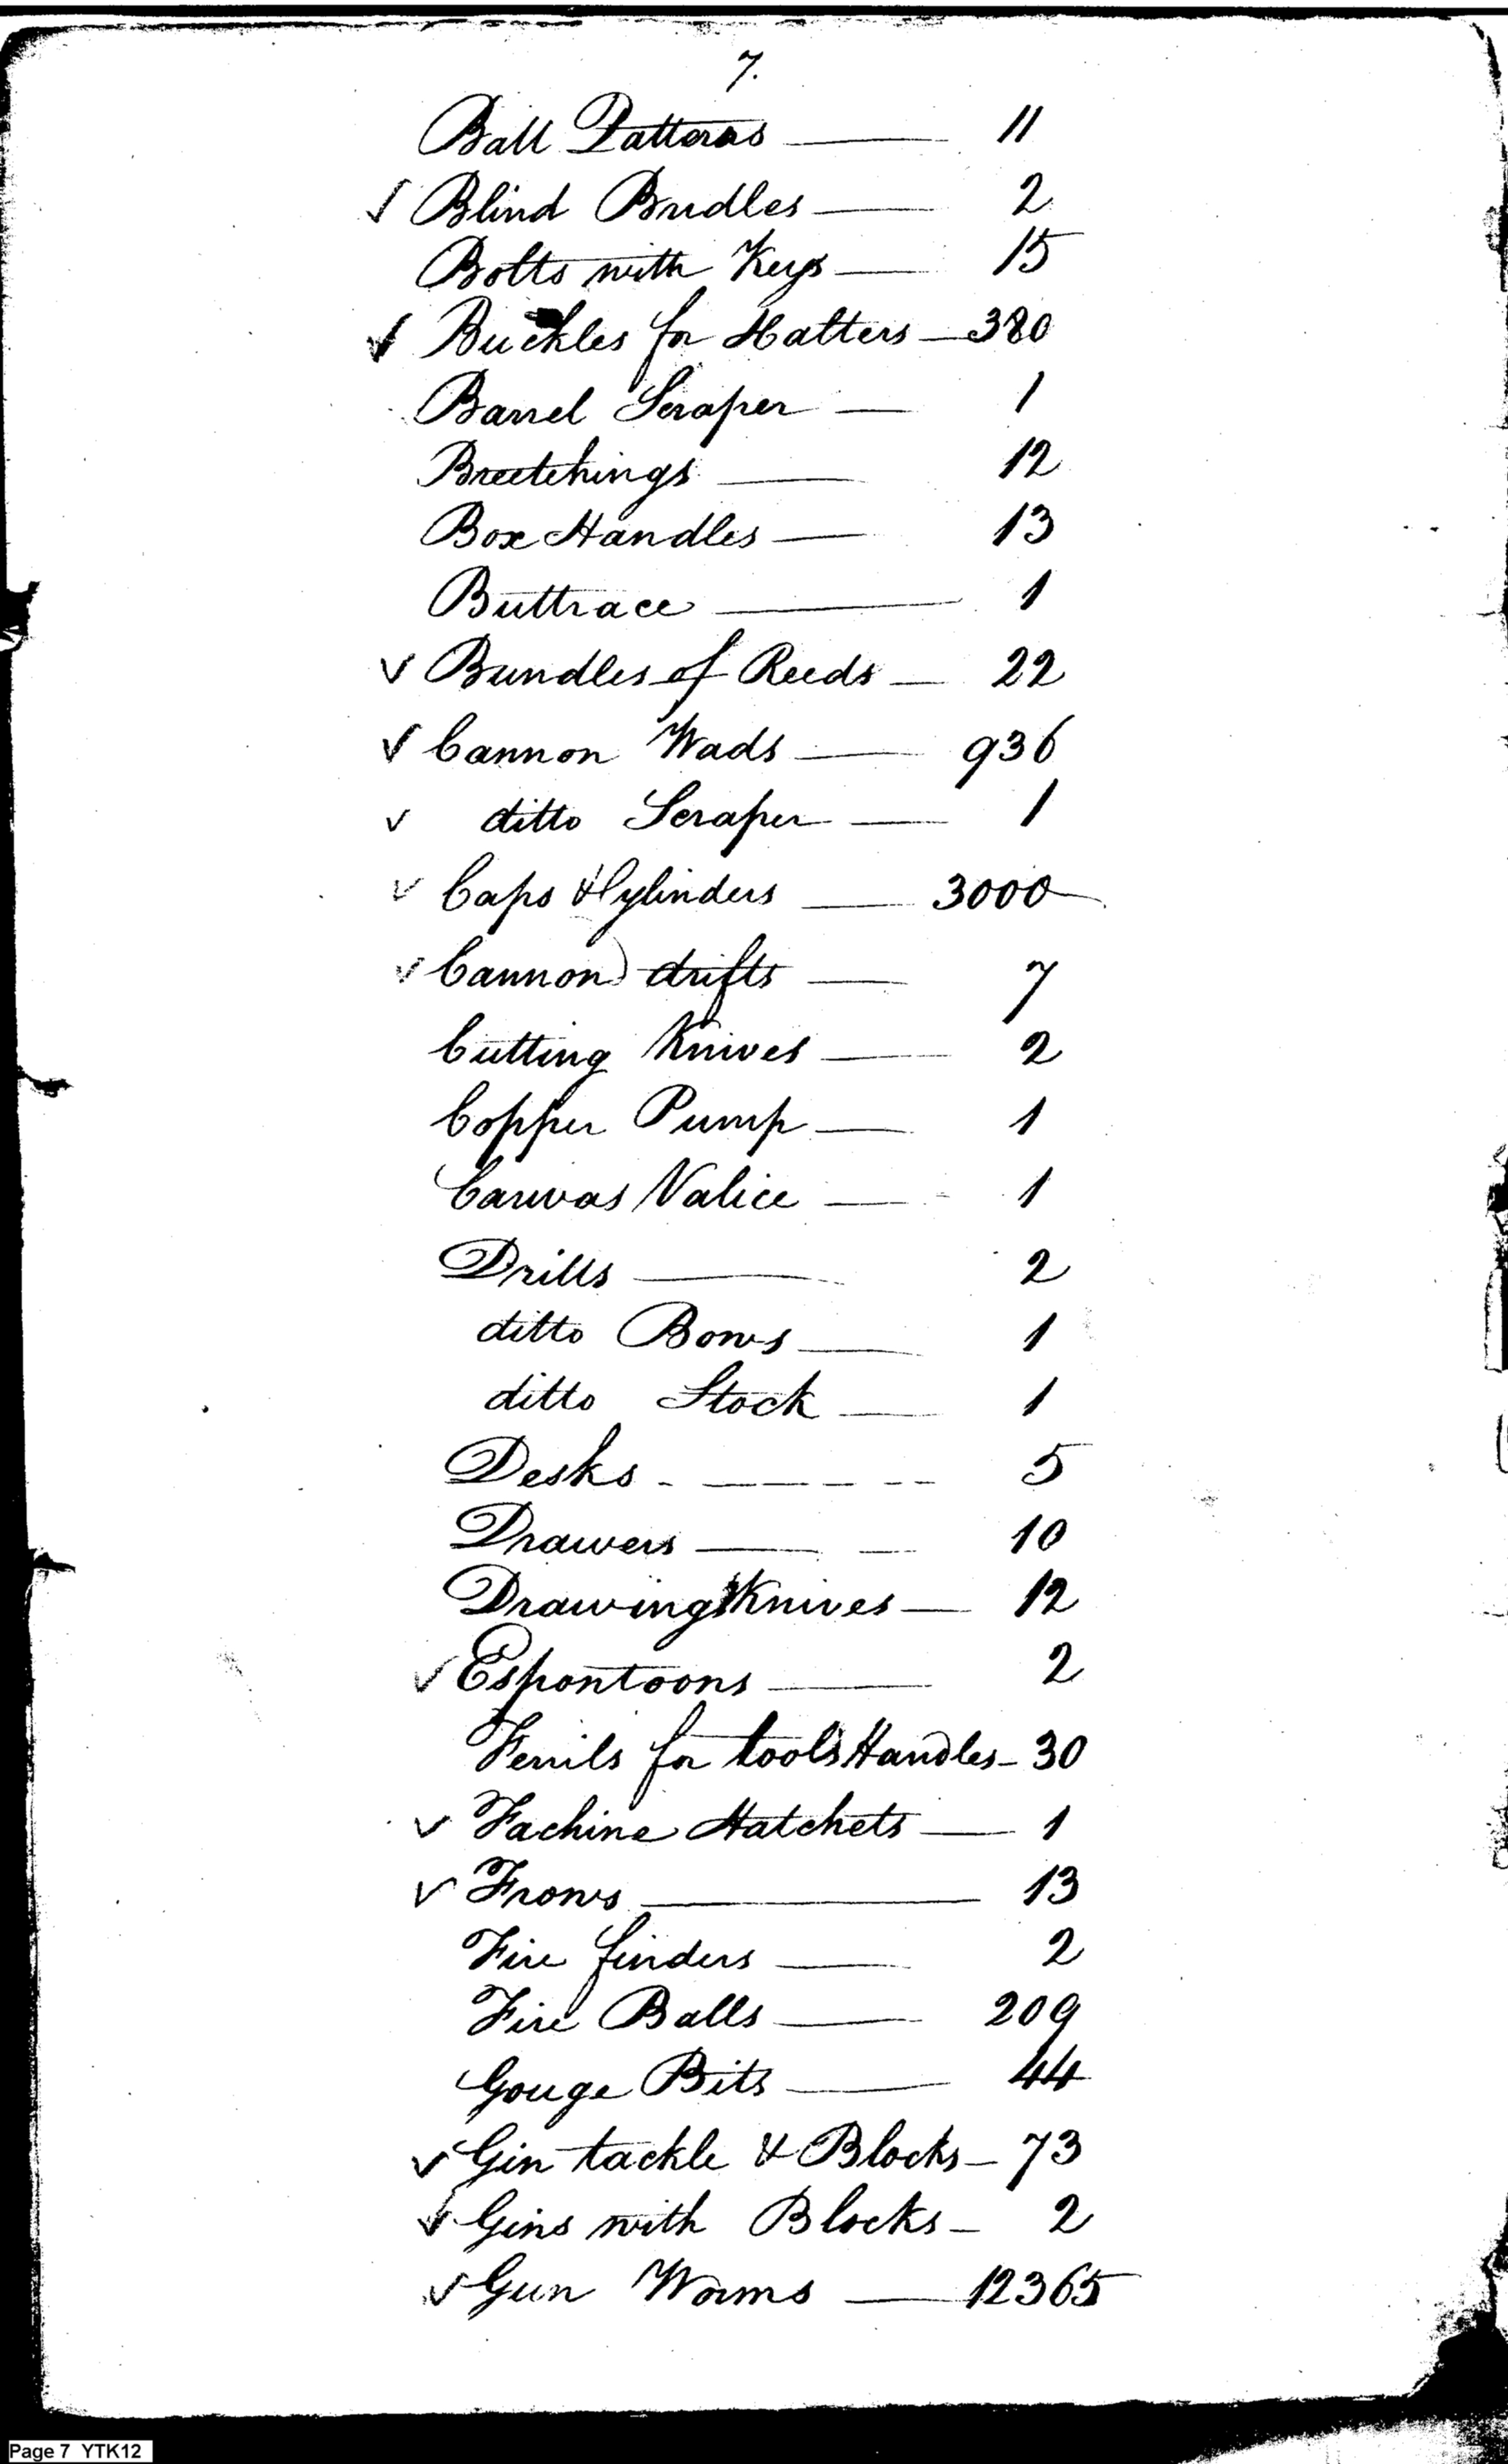 7.
Ball Patterns — 11
✓ Blind Bridles — 2
Bolts with Keys — 15
✓ Buckles for Halters — 380
Barrel Scraper — 1
Breetchings — 12
Box Handles — 13
Buttrace — 1
✓ Bundles of Reeds — 22
✓ Cannon Wads — 936
✓ ditto Scraper — 1
✓ Caps & Cylinders — 3000
✓ Cannon drifts — 7
Cutting Knives — 2
Copper Pump — 1
Canvas Valice — 1
Drills — 2
ditto Bows — 1
ditto Stock — 1
Desks — 5
Drawers — 10
Drawing Knives — 12
✓ Espontoons — 2
Ferrils for tools Handles — 30
✓ Fachine Hatchets — 1
✓ Frows — 13
Fire finders — 2
Fire Balls — 209
Gouge Bits — 44
✓ Gin tackle & Blocks — 73
✓ Gins with Blocks — 2
✓ Gun Worms — 12365
Page 7 YTK12